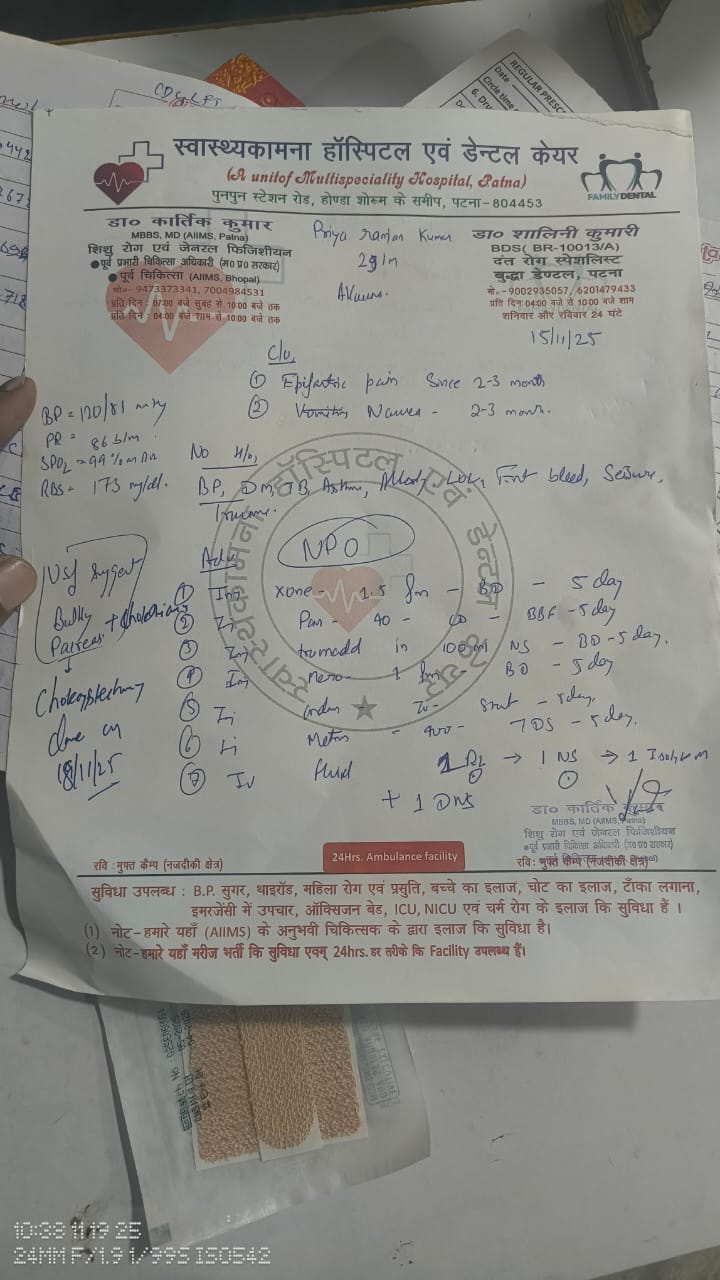 CDS LFT
REGULAR PRESC
Date
Circle time
6. Dru
स्वास्थ्यकामना हॉस्पिटल एवं डेन्टल केयर
(A unitof Multispeciality Hospital, Patna)
पुनपुन स्टेशन रोड, होण्डा शोरूम के समीप, पटना-804453
FAMILYDENTAL
डा० कार्तिक कुमार
MBBS, MD (AIIMS, Patna)
शिशु रोग एवं जेनरल फिजिशियन
●पूर्व प्रभारी चिकित्सा अधिकारी (म०प्र० सरकार)
●पूर्व चिकित्सा (AIIMS, Bhopal)
मो०- 9473373341, 7004984531
प्रति दिन : 07:00 बजे सुबह से 10:00 बजे तक
प्रति दिन : 04:00 बजे शाम से 10:00 बजे तक
Priya ranjan Kumar
29/m
डा० शालिनी कुमारी
BDS( BR-10013/A)
दंत रोग स्पेशलिस्ट
बुद्धा डेण्टल, पटना
मो.-9002935057, 6201479433
प्रति दिन:04:00 बजे से 10:00 बजे शाम
शनिवार और रविवार 24 घंटे
15/11/25
C/o,
① Epigastric pain Since 2-3 month
② Nausea - 2-3 month.
BP = 120/81
PR = 86 b/m.
SPO2 = 99%
RBS = 173 mg/dl.
No H/o,
BP, DM, TB, Asthma, Allergy, LOC, Ent bleed, Seizure,
Trauma.
Adv
NPO
① Inj xone - 1.5 gm - BD - 5 day
② Inj Pan - 40 - OD - BBF - 5 day
③ Inj tramadol in 100 ml NS - BD - 5 day.
④ Inj Mero - 1 gm - BD - 5 day
⑤ Inj - stat - 5 day.
⑥ Inj Metro - 400 - TDS - 5 day.
⑦ IV fluid 1 RL → 1 NS → 1 Isolyte M
+ 1 DNS
USG suggest
Bulky
Pancreas
↓
Cholecystectomy
done on
18/11/25
स्वास्थ्यकामना हॉस्पिटल एवं डेन्टल केयर
डा० कार्तिक कुमार
MBBS, MD (AIIMS, Patna)
शिशु रोग एवं जेनरल फिजिशियन
●पूर्व प्रभारी चिकित्सा अधिकारी (म०प्र० सरकार)
रवि : मुफ्त कैम्प (नजदीकी क्षेत्र)
24Hrs. Ambulance facility
रवि: मुफ्त कैम्प (नजदीकी क्षेत्र)
सुविधा उपलब्ध : B.P. सुगर, थाइरॉड, महिला रोग एवं प्रसुति, बच्चे का इलाज, चोट का इलाज, टाँका लगाना,
इमरजेंसी में उपचार, ऑक्सिजन बेड, ICU, NICU एवं चर्म रोग के इलाज कि सुविधा हैं ।
(1) नोट-हमारे यहाँ (AIIMS) के अनुभवी चिकित्सक के द्वारा इलाज कि सुविधा है।
(2) नोट-हमारे यहाँ मरीज भर्ती कि सुविधा एवम् 24hrs. हर तरीके कि Facility उपलब्ध हैं।
10:33 11.19 25
24MM F/1.9 1/99S ISO542